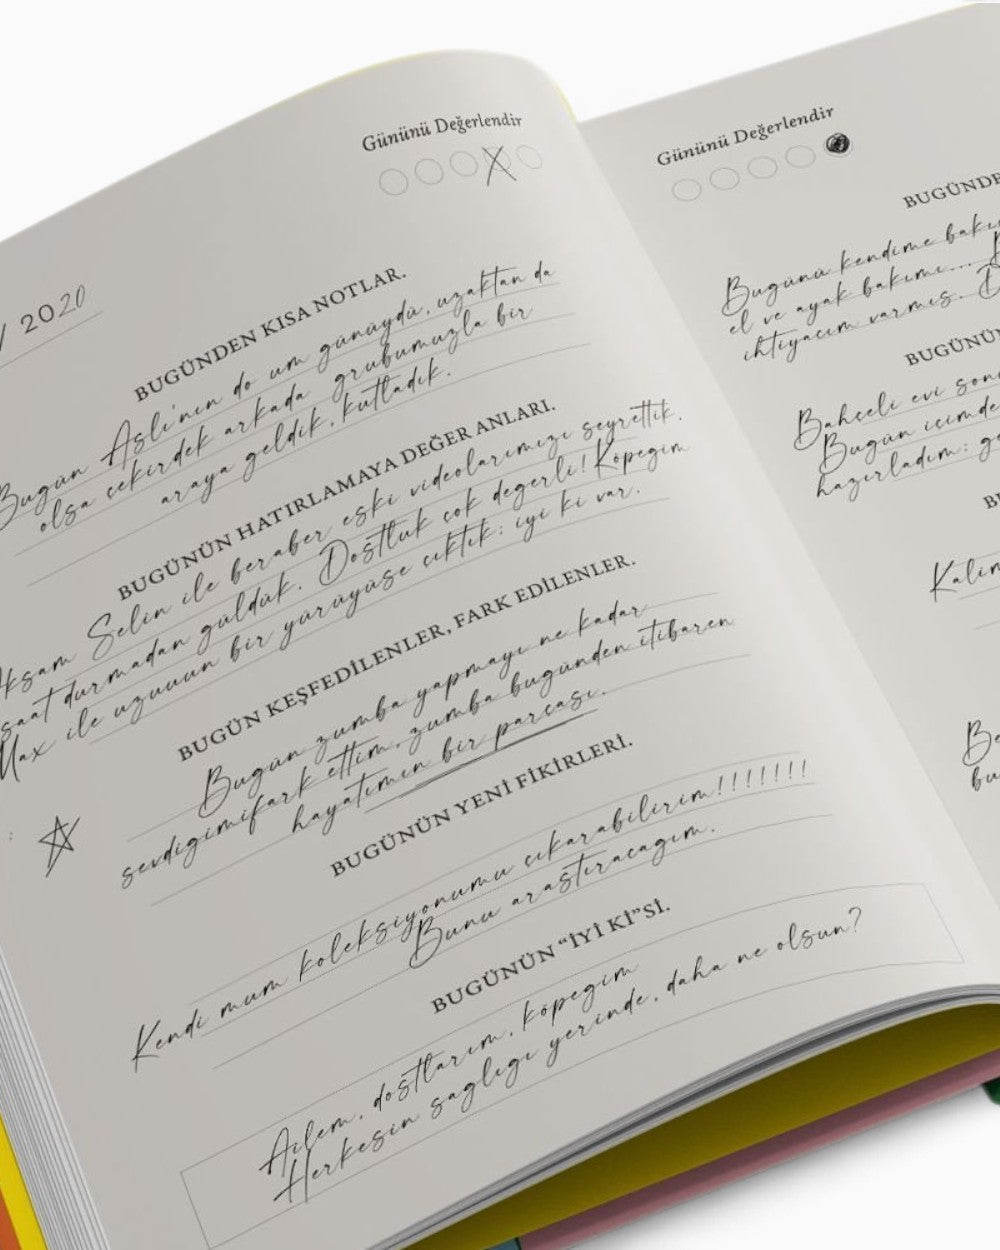 Gününü Değerlendir
/ 2020
BUGÜNDEN KISA NOTLAR.
Bugün Aslı'nın do um günüydü, uzaktan da
olsa cekirdek arkada grubumuzla bir
araya geldik, kutladık.
BUGÜNÜN HATIRLAMAYA DEĞER ANLARI.
Aksam Selin ile beraber eski videolarımızı seyrettik.
saat durmadan güldük. Dostluk cok degerli! Köpegim
Max ile uzuuun bir yürüyüse cıktık: iyi ki var.
BUGÜN KEŞFEDİLENLER, FARK EDİLENLER.
Bugün zumba yapmayı ne kadar
sevdigimifark ettim, zumba bugünden itibaren
hayatımın bir parcası.
BUGÜNÜN YENİ FİKİRLERİ.
Kendi mum koleksiyonumu cıkarabilirim!!!!!!!
Bunu arastıracagım.
BUGÜNÜN “İYİ Kİ”Sİ.
Ailem, dostlarım, köpegim
Herkesin saglıgı yerinde, daha ne olsun?
Gününü Değerlendir
BUGÜNDE
Bugünü kendime bakı
el ve ayak bakımı...
ihtiyacım varmıs.
BUGÜNÜN
Bahceli evi son
Bugün icimde
hazırladım: ge
Kalin
Be
bu